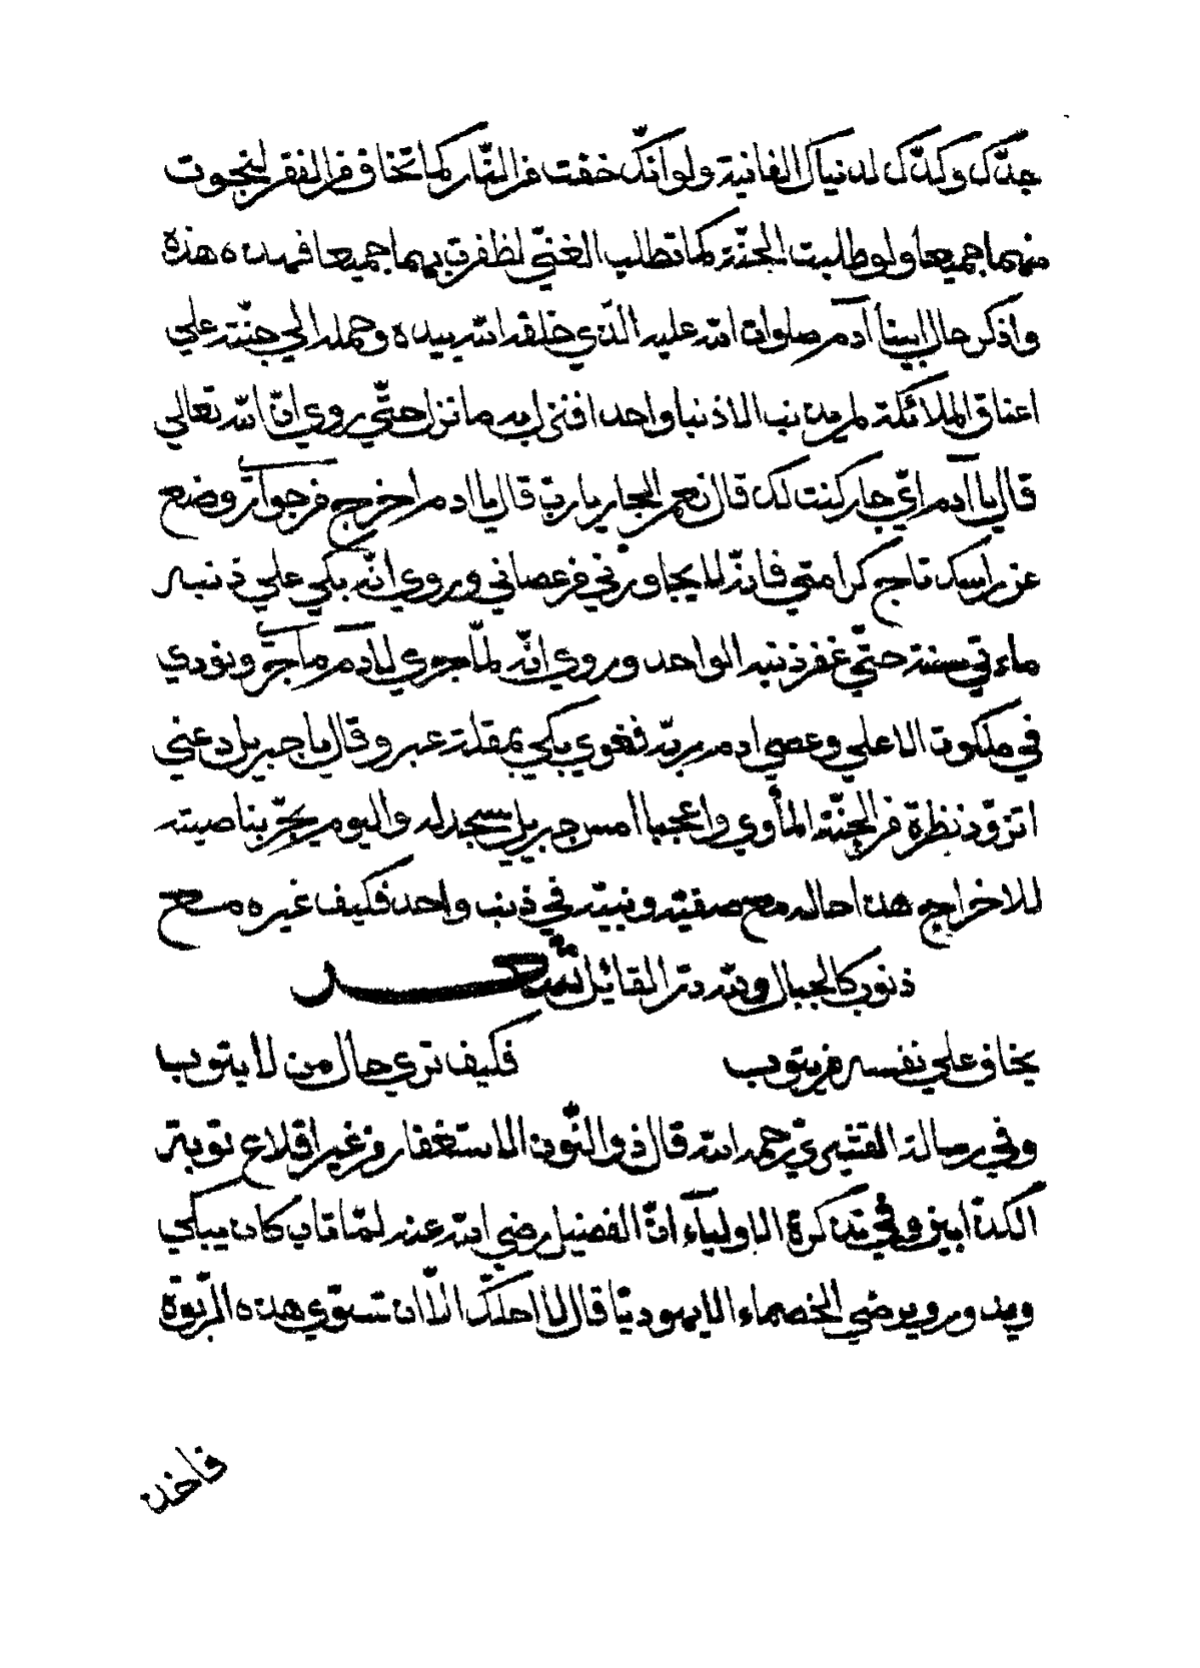 جدّك وكدّك لدنياك الفانية ولو انّك خفت من النّار كما تخاف من الفقر لنجوت
منهما جميعا ولو طلبت الجنّة كما تطلب الغنيّ لظفرت بهما جميعا فهذه هذه
واذكر حال ابينا آدم صلوات الله عليه الّذي خلقه الله بيده وحمله الي جنّته علي
اعناق الملائكة لم يذنب الا ذنبا واحدا فنزل به ما نزل حتّي روي انّ الله تعالي
قال يا آدم ايّ جار كنت لك قال نعم الجار يا ربّ قال يا ادم اخرج من جواري وضع
عن راسك تاج كرامتي فانّه لا يجاورني من عصاني وروي انّه بكي علي ذنبه
ماءتي سنة حتّي غفر ذنبه الواحد وروي انّه لمّا جري لآدم ما جري ونودي
في ملكوت الاعلي وعصي ادم ربّه فغوي بكي بمقلة عبر وقال يا جبريل دعني
اتزوّد نظرة من الجنّة المأوي واعجبا امس جبريل يسجد له واليوم يجرّ بناصيته
للاخراج هذا حاله مع صفيّه ونبيّه في ذنب واحد فكيف غيره مع
ذنوب كالجبال ولله درّ القائل شعر
يخاف علي نفسه من يتوب فكيف تري حال من لا يتوب
وفي رسالة القشيري رحمه الله قال ذو النّون الاستغفار من غير اقلاع توبة
الكذّابين وفي تذكرة الاولياء انّ الفضيل رضي الله عنه لمّا تاب كان يبكي
ويدور ويرضي الخصماء الا يهوديّا قال لا احلّك الّا ان تسوّي هذه الرّبوة
فاخذ